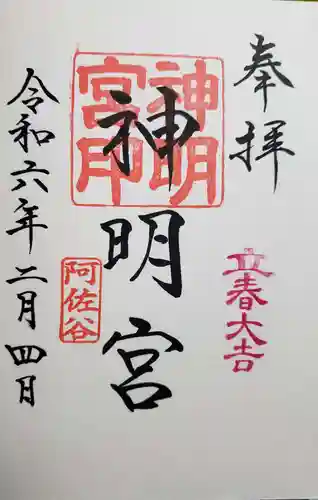 奉拝
立春大吉
神明宮
神明宮印
阿佐谷
令和六年二月四日